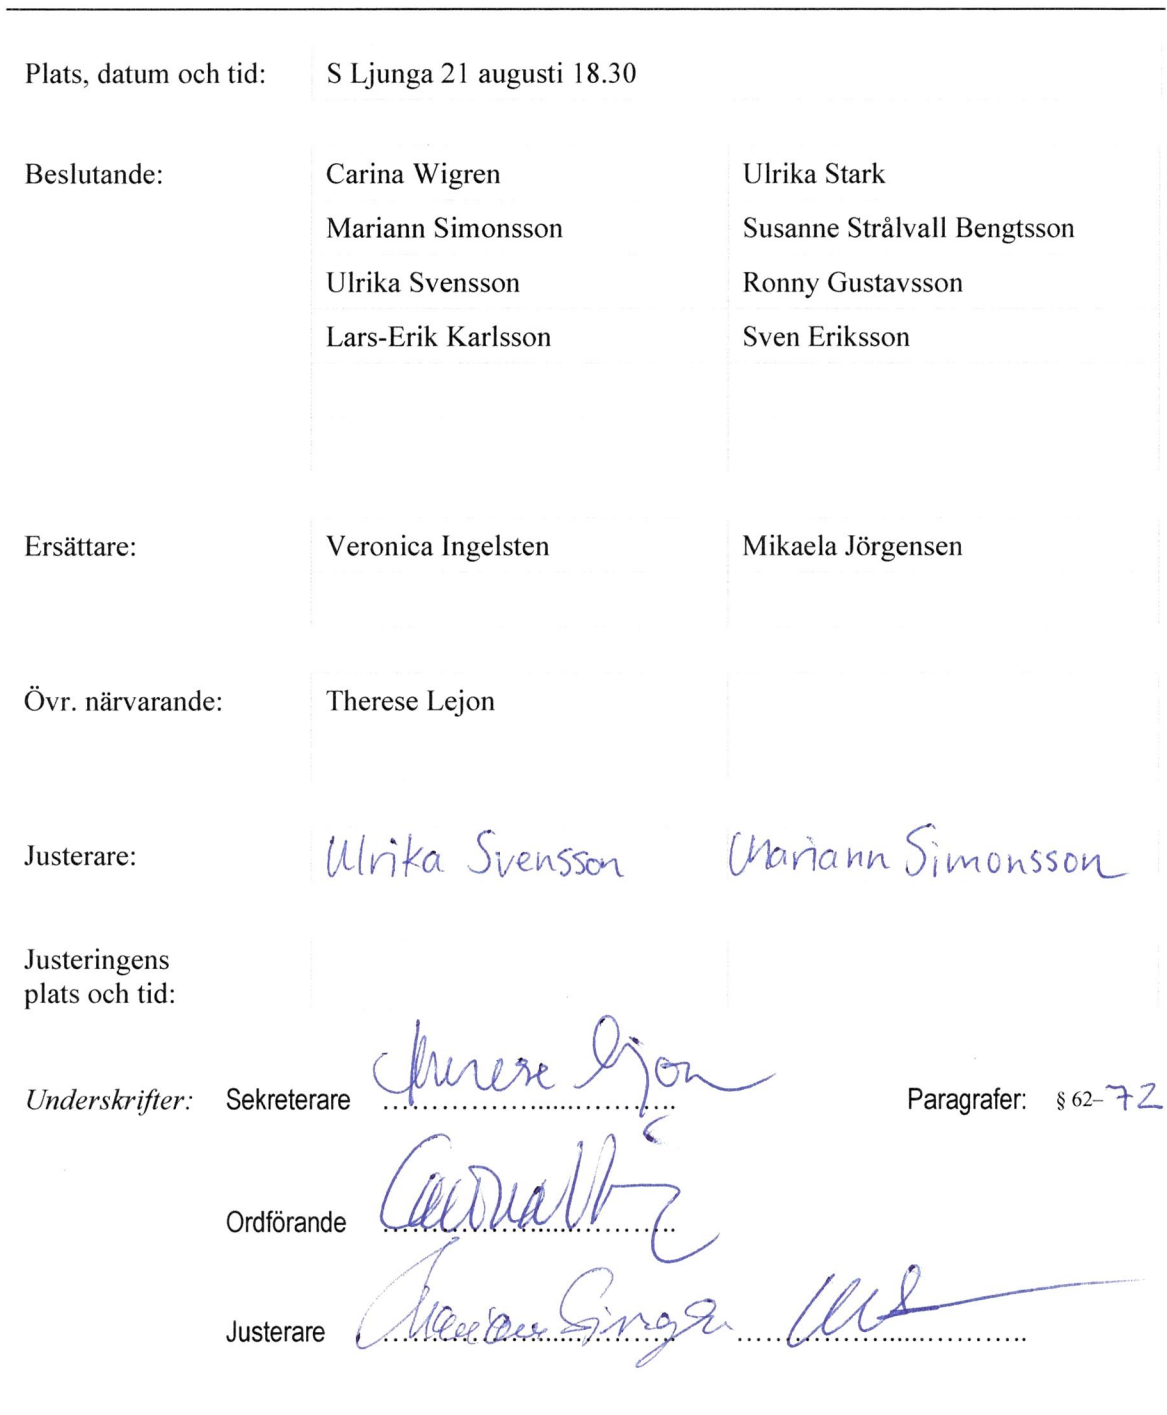 Plats, datum och tid: S Ljunga 21 augusti 18.30
Beslutande: Carina Wigren Ulrika Stark
Mariann Simonsson Susanne Strålvall Bengtsson
Ulrika Svensson Ronny Gustavsson
Lars-Erik Karlsson Sven Eriksson
Ersättare: Veronica Ingelsten Mikaela Jörgensen
Övr. närvarande: Therese Lejon
Justerare: Ulrika Svensson Mariann Simonsson
Justeringens
plats och tid:
Underskrifter: Sekreterare Therese Lejon Paragrafer: § 62–72
Ordförande
Justerare